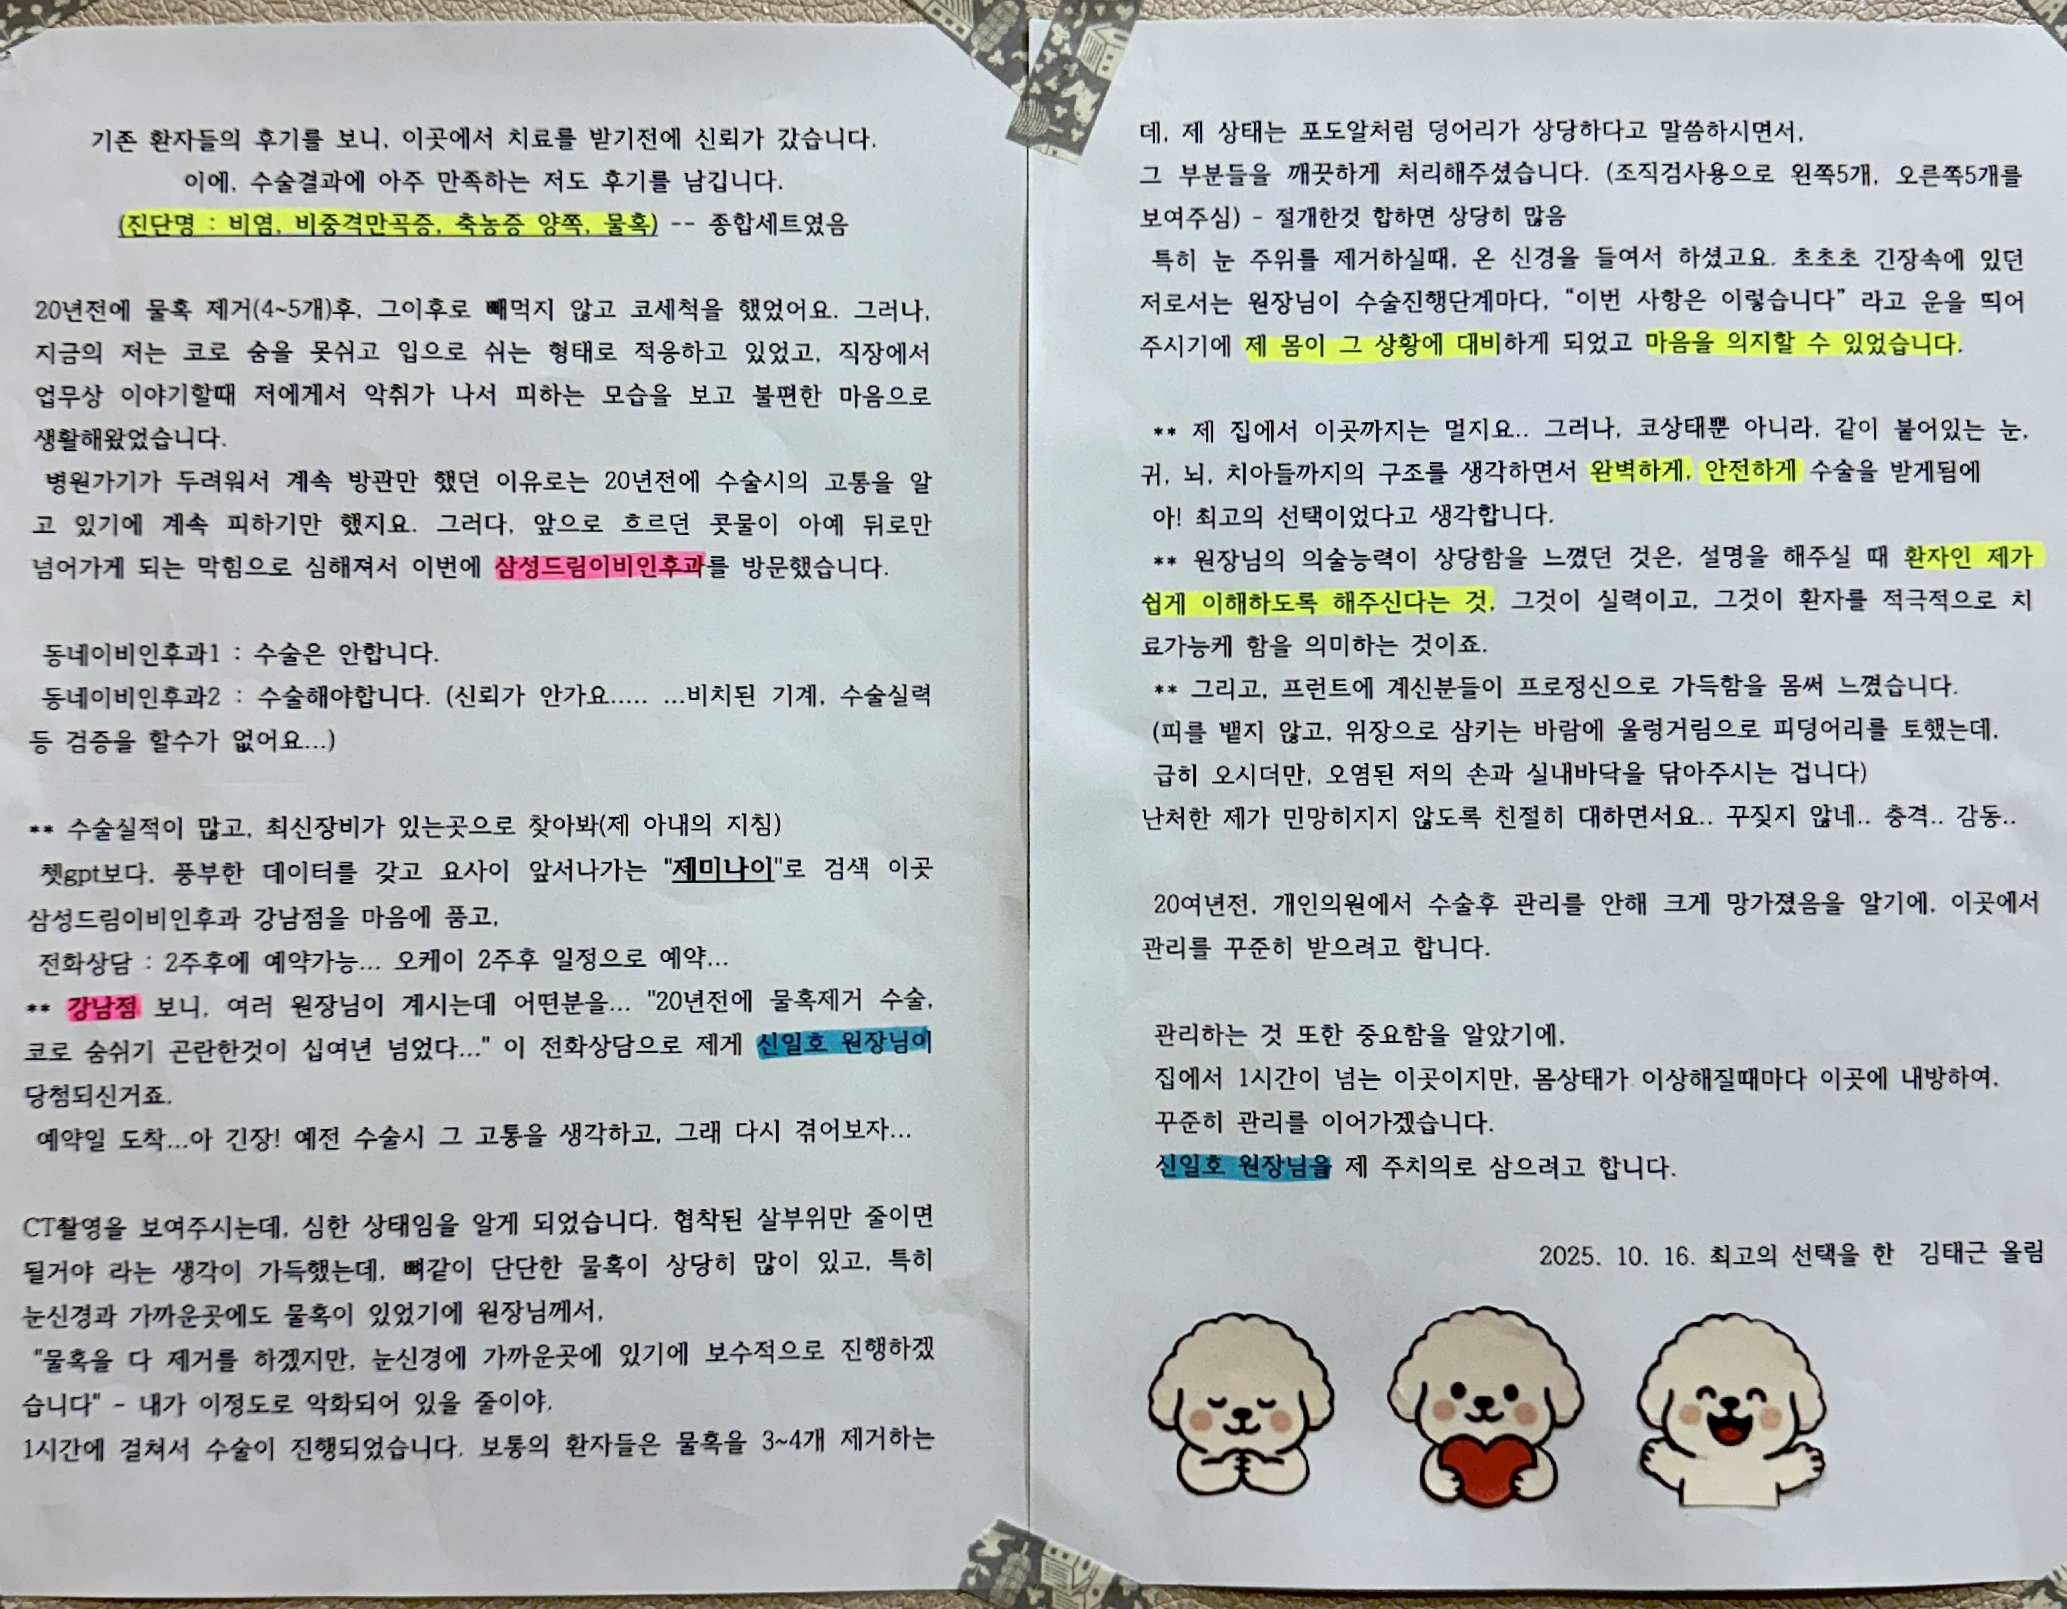 기존 환자들의 후기를 보니, 이곳에서 치료를 받기전에 신뢰가 갔습니다.
이에, 수술결과에 아주 만족하는 저도 후기를 남깁니다.
(진단명 : 비염, 비중격만곡증, 축농증 양쪽, 물혹) -- 종합세트였음
20년전에 물혹 제거(4~5개)후, 그이후로 빼먹지 않고 코세척을 했었어요. 그러나,
지금의 저는 코로 숨을 못쉬고 입으로 쉬는 형태로 적응하고 있었고, 직장에서
업무상 이야기할때 저에게서 악취가 나서 피하는 모습을 보고 불편한 마음으로
생활해왔었습니다.
병원가기가 두려워서 계속 방관만 했던 이유로는 20년전에 수술시의 고통을 알
고 있기에 계속 피하기만 했지요. 그러다, 앞으로 흐르던 콧물이 아예 뒤로만
넘어가게 되는 막힘으로 심해져서 이번에 삼성드림이비인후과를 방문했습니다.
동네이비인후과1 : 수술은 안합니다.
동네이비인후과2 : 수술해야합니다. (신뢰가 안가요..... ...비치된 기계, 수술실력
등 검증을 할수가 없어요...)
** 수술실적이 많고, 최신장비가 있는곳으로 찾아봐(제 아내의 지침)
쳇gpt보다, 풍부한 데이터를 갖고 요사이 앞서나가는 "제미나이"로 검색 이곳
삼성드림이비인후과 강남점을 마음에 품고,
전화상담 : 2주후에 예약가능... 오케이 2주후 일정으로 예약...
** 강남점 보니, 여러 원장님이 계시는데 어떤분을... "20년전에 물혹제거 수술,
코로 숨쉬기 곤란한것이 십여년 넘었다..." 이 전화상담으로 제게 신일호 원장님이
당첨되신거죠.
예약일 도착...아 긴장! 예전 수술시 그 고통을 생각하고, 그래 다시 겪어보자...
CT촬영을 보여주시는데, 심한 상태임을 알게 되었습니다. 협착된 살부위만 줄이면
될거야 라는 생각이 가득했는데, 뼈같이 단단한 물혹이 상당히 많이 있고, 특히
눈신경과 가까운곳에도 물혹이 있었기에 원장님께서,
"물혹을 다 제거를 하겠지만, 눈신경에 가까운곳에 있기에 보수적으로 진행하겠
습니다" - 내가 이정도로 악화되어 있을 줄이야.
1시간에 걸쳐서 수술이 진행되었습니다. 보통의 환자들은 물혹을 3~4개 제거하는
데, 제 상태는 포도알처럼 덩어리가 상당하다고 말씀하시면서,
그 부분들을 깨끗하게 처리해주셨습니다. (조직검사용으로 왼쪽5개, 오른쪽5개를
보여주심) - 절개한것 합하면 상당히 많음
특히 눈 주위를 제거하실때, 온 신경을 들여서 하셨고요. 초초초 긴장속에 있던
저로서는 원장님이 수술진행단계마다, “이번 사항은 이렇습니다” 라고 운을 띄어
주시기에 제 몸이 그 상황에 대비하게 되었고 마음을 의지할 수 있었습니다.
** 제 집에서 이곳까지는 멀지요.. 그러나, 코상태뿐 아니라, 같이 붙어있는 눈,
귀, 뇌, 치아들까지의 구조를 생각하면서 완벽하게, 안전하게 수술을 받게됨에
아! 최고의 선택이었다고 생각합니다.
** 원장님의 의술능력이 상당함을 느꼈던 것은, 설명을 해주실 때 환자인 제가
쉽게 이해하도록 해주신다는 것, 그것이 실력이고, 그것이 환자를 적극적으로 치
료가능케 함을 의미하는 것이죠.
** 그리고, 프런트에 계신분들이 프로정신으로 가득함을 몸써 느꼈습니다.
(피를 뱉지 않고, 위장으로 삼키는 바람에 울렁거림으로 피덩어리를 토했는데,
급히 오시더만, 오염된 저의 손과 실내바닥을 닦아주시는 겁니다)
난처한 제가 민망히지지 않도록 친절히 대하면서요.. 꾸짖지 않네.. 충격.. 감동..
20여년전, 개인의원에서 수술후 관리를 안해 크게 망가졌음을 알기에, 이곳에서
관리를 꾸준히 받으려고 합니다.
관리하는 것 또한 중요함을 알았기에,
집에서 1시간이 넘는 이곳이지만, 몸상태가 이상해질때마다 이곳에 내방하여,
꾸준히 관리를 이어가겠습니다.
신일호 원장님을 제 주치의로 삼으려고 합니다.
2025. 10. 16. 최고의 선택을 한 김태근 올림